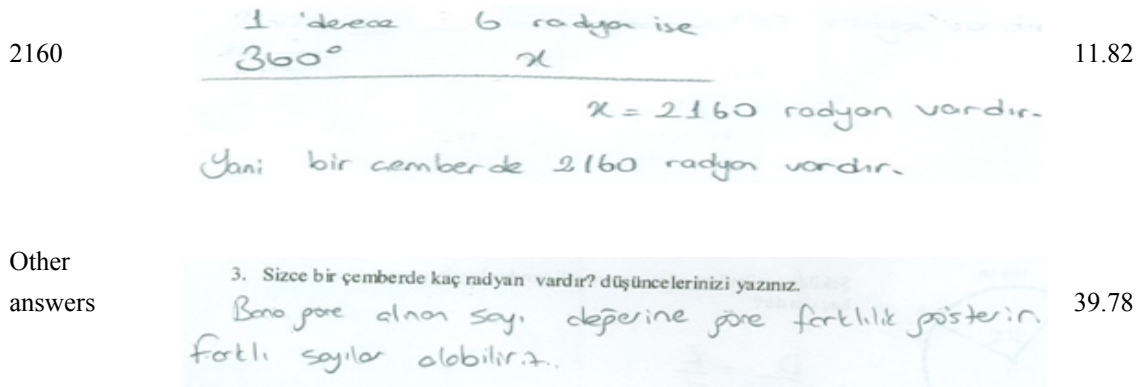 1 'derece 6 radyan ise
2160 360° x 11.82
x = 2160 radyan vardır.
Yani bir çemberde 2160 radyan vardır.
Other
answers
3. Sizce bir çemberde kaç radyan vardır? düşüncelerinizi yazınız.
Bana göre alınan sayı değerine göre farklılık gösterir. 39.78
Farklı sayılar alabiliriz..